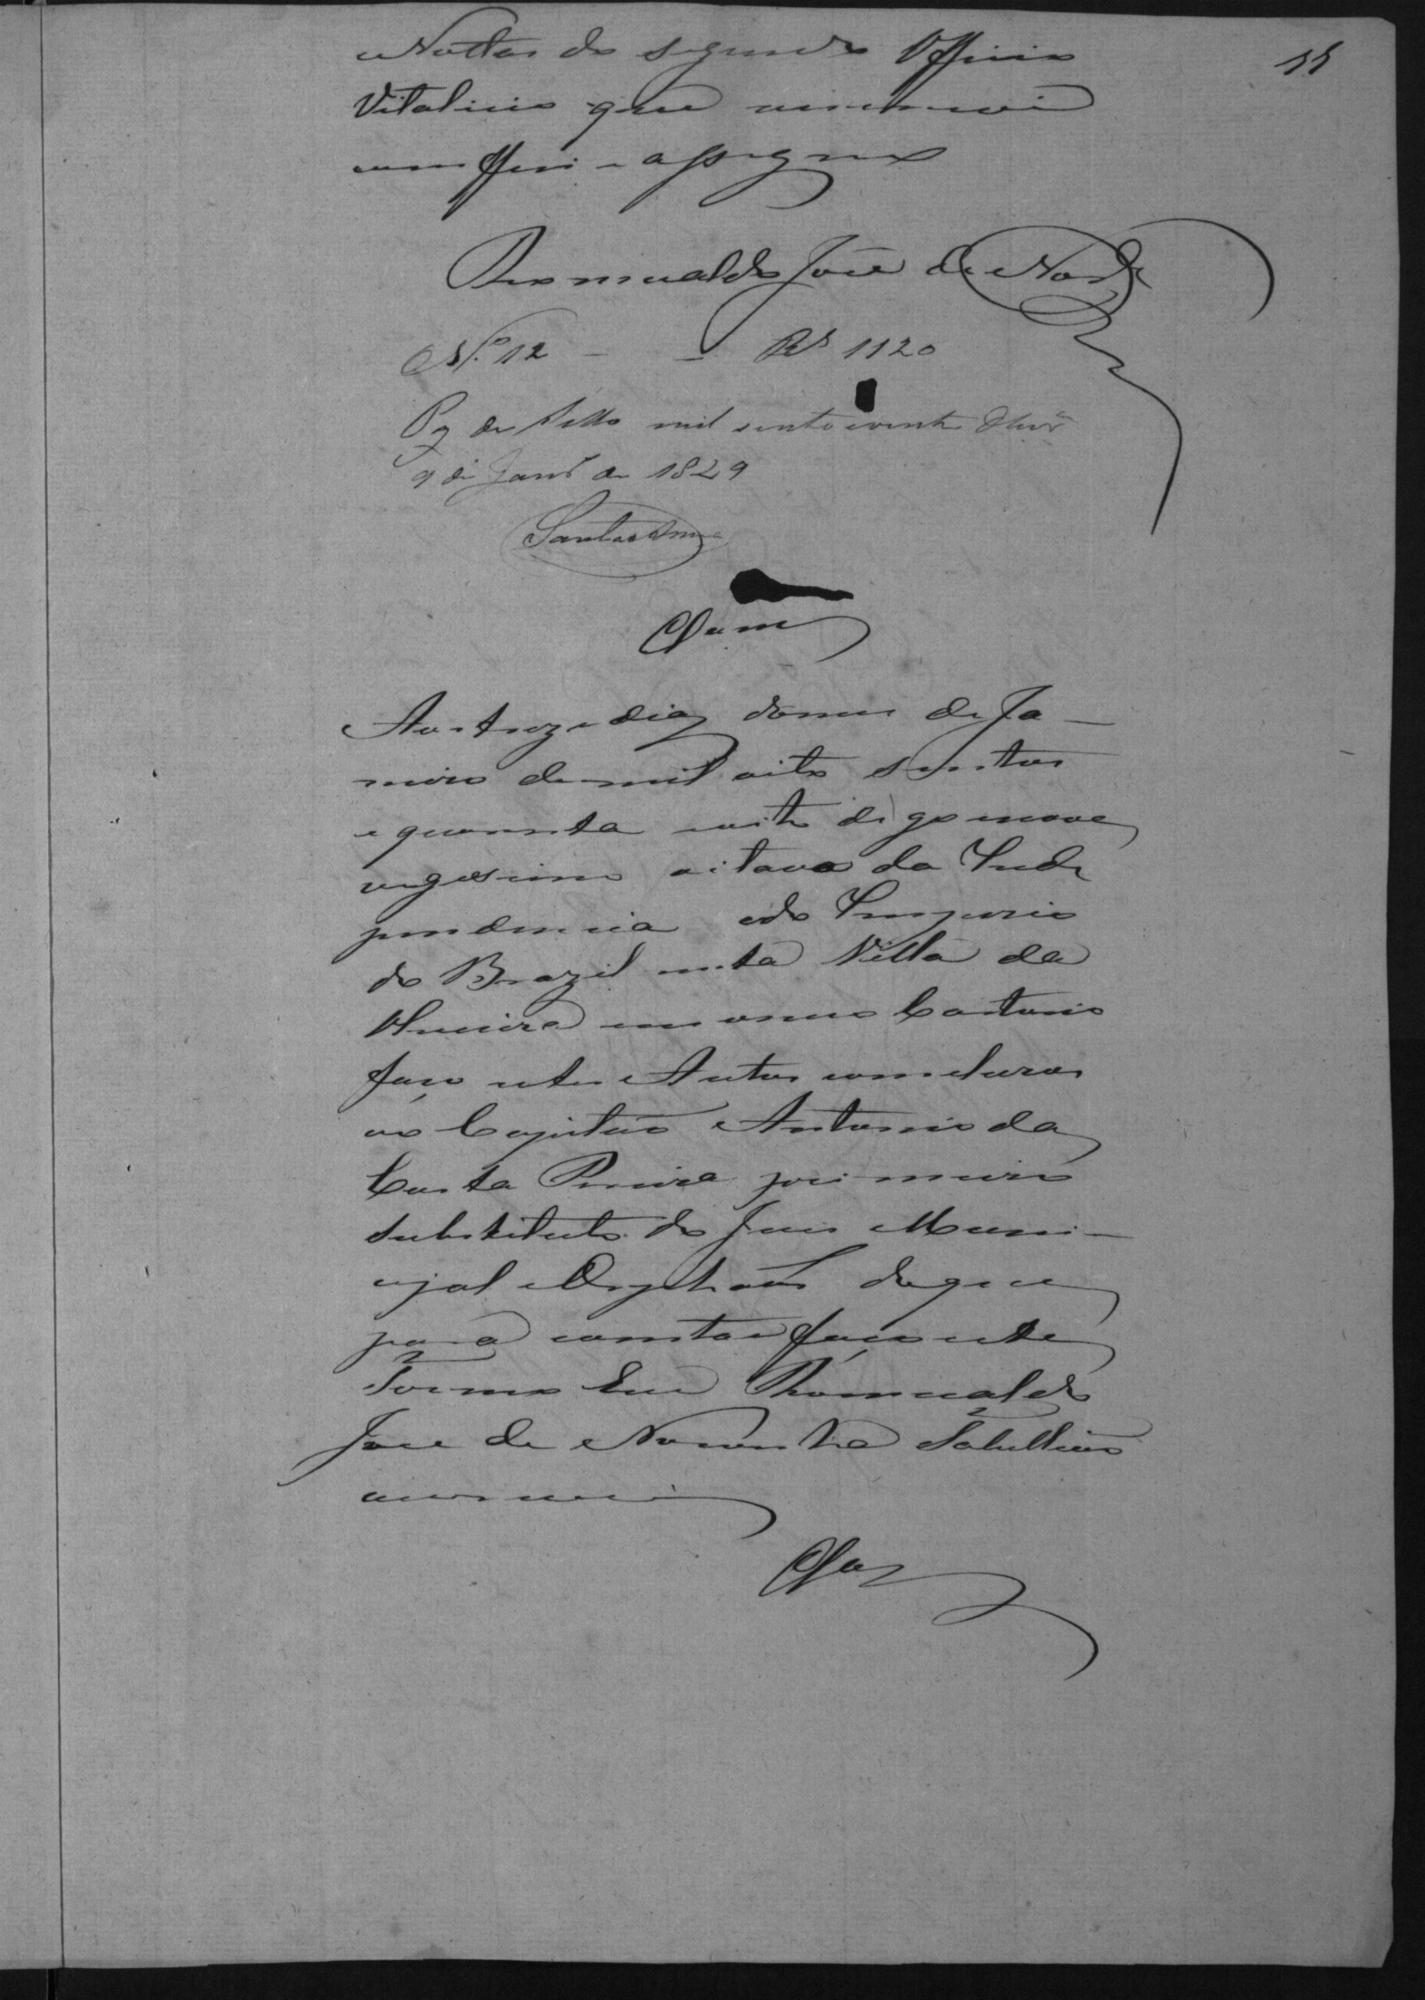 Nottas do segundo Officio
Vitalicio que escrevi
confferi e assignei
Romualdo José de Nor.ª
11
N.º 12 — — Rs 1120
Pg de Sello mil cento e vinte
9 de Janr.º de 1849
Sant'Anna
Clam
Aos treze dias do mes de Ja-
neiro de mil oito sentos
e quarenta e oito digo e nove
vigesimo oitavo da Inde
pendencia e do Imperio
do Brazil nesta Villa da
em o meu Cartorio
faço estes Autos comcluzos
ao Capitão Antonio da
Costa Pereira primeiro
substituto do Juis Muni-
cipal e Orphãos do que
para constar faço este
Termo Eu Romualdo
José de Noronha Tabellião
escrevi
Clos